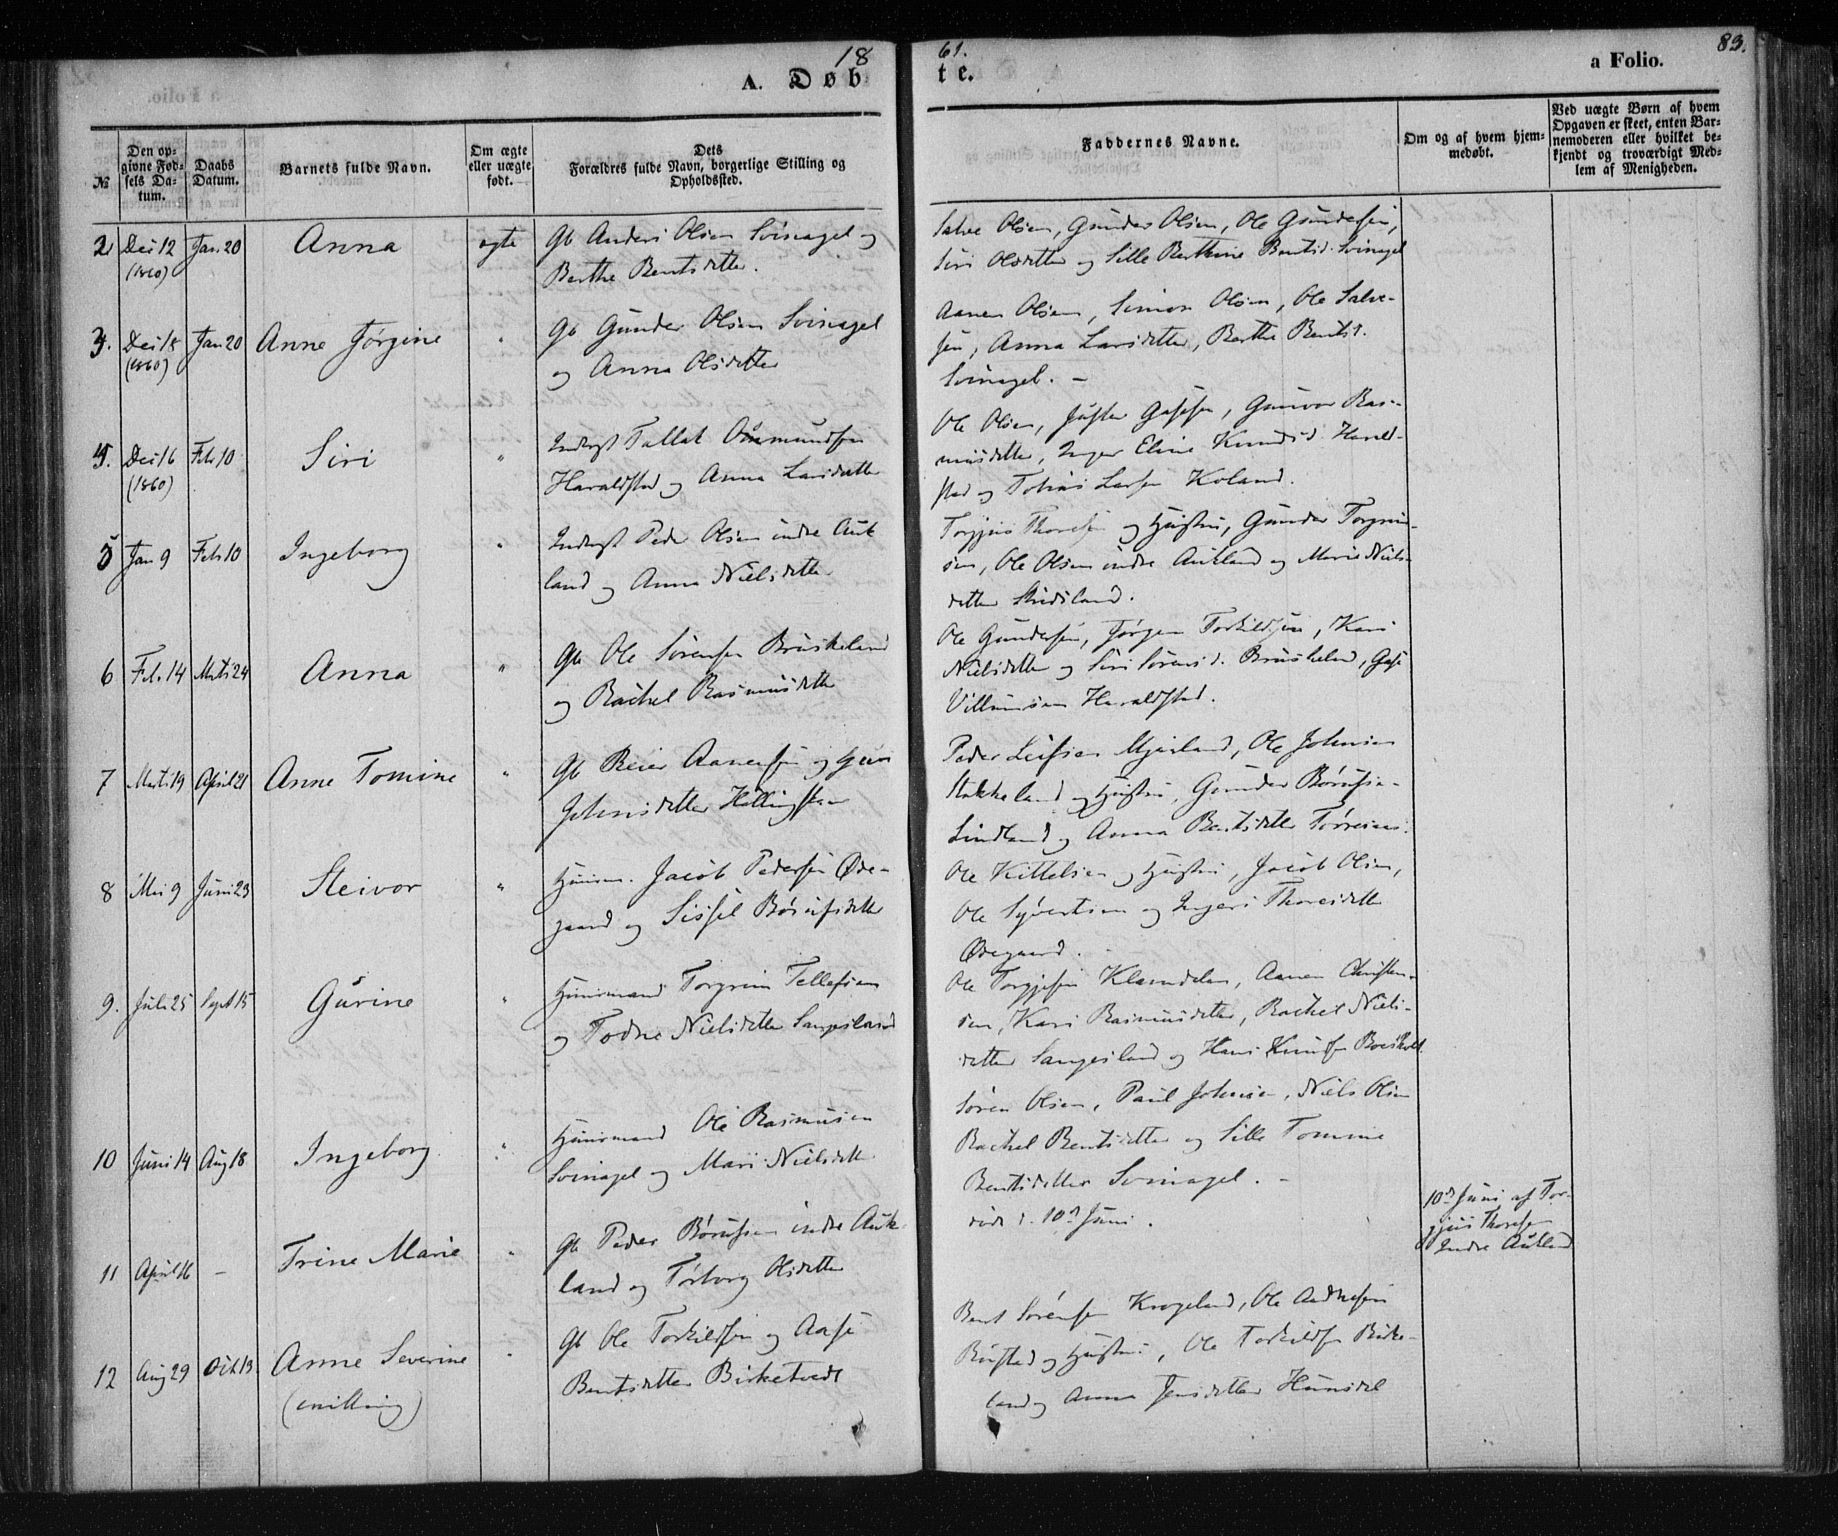 18
61.
83.
A. Døb
te.
a Folio.
№
Den op-
givne Fød-
sels Da-
tum.
Daabs
Datum.
Barnets fulde Navn.
Om ægte
eller uægte
født.
Dets
Forældres fulde Navn, borgerlige Stilling og
Opholdssted.
Faddernes Navne.
Om og af hvem hjem-
medøbt.
Ved uægte Børn af hvem
Opgaven er skeet, enten Bar-
nemoderen eller hvilket be-
kjendt og troværdigt Med-
lem af Menigheden.
2 Dec 12 Jan. 20 Anna ægte Gb Anders Olsen Svinagel og
(1860) Berthe Bentsdatter.
Salve Olsen, Gunder Olsen, Ole Gundersen,
Siri Olsdatter og Sille Berthine Bentsd. Svinagel
3. Dec 18 Jan 20 Anne Jørgine " Gb Gunder Olsen Svinagel
(1860) og Anna Olsdatter
Aanen Olsen, Simon Olsen, Ole Salve-
sen, Anna Larsdatter, Berthe Bentsd.
Svinagel. –
4. Dec 16 Feb 10 Siri " Inderst Tallak Osmundsen
(1860) Haraldstad og Anna Larsdatter
Ole Olsen, Gunvor Ras-
musdatter, Inger Eline Knudsd. Harald-
stad og Tobias Larsen Koland.
5 Jan 9 Feb 10 Ingeborg " Inderst Peder Olsen indre Auk
land og Anna Nielsdatter
Torjus Thoresen og Hustru, Gunder Torgrim-
sen, Ole Olsen indre Aukland og Marie Niels-
datter
6 Feb. 14 Marts 24 Anna " Gb Ole Sørensen Bruskeland
og Rachel Rasmusdatter
Ole Gundersen, Jørgen Torkildsen, Kari
Nielsdatter og Siri Sørensd. Bruskeland,
Villumsen Haraldstad.
7 Marts 19 April 21 Anne Tomine " Gb Reier Aanensen og
Johnsdatter
Peder Leifsen Mjaaland, Ole Johnsen
Stakkeland og Hustru, Gunder Børufsen
Lindland og Anna Bentsdatter
8 Mai 9 Juni 23 Steivor " Huusm. Jacob Pedersen Øde-
gaard og Sissel Børufsdatter
Ole Kittelsen og Hustru, Jacob Olsen,
Ole Syvertsen og Thoresdatter
Ødegaard.
9. Juli 25 Sept 15 Gurine " Huusmand Torgrim Tellefsen
og Todne Nielsdatter Sangesland
Ole Torgjesen, Aanen Christen-
sen, Kari Rasmusdatter, Rachel Niels-
datter Sangesland og Hans Knudsen
10 Juni 14 Aug 18 Ingeborg " Huusmand Ole Rasmusen
Svinagel og Mari Nielsdatter
Søren Olsen, Paul Johnsen, Niels Olsen
Rachel Bentsdatter og Sille Tomine
Bentsdatter Svinagel. –
11 April 16 – Trine Marie " Gb Peder Børufsen indre Auk-
land og Torborg Olsdatter
død d. 10d Juni.
10d Juni af Tor-
gjus Thoresen
Indre Aukland
12 Aug 29 Oct. 13. Anne Severine " Gb Ole Torkildsen og Aase
(tvilling) Bentsdatter Birketvedt
Bent Sørensen Krogeland, Ole
og Hustru, Ole Torkildsen Birke-
land og Anna Jensdatter Hunsdal